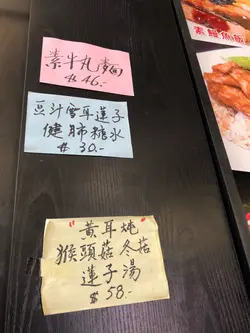 素鰻魚飯
素牛丸麵
$46.-
豆汁雪耳蓮子
健肺糖水
$30.-
"黃耳炖
猴頭菇冬菇
蓮子湯"
$58.-